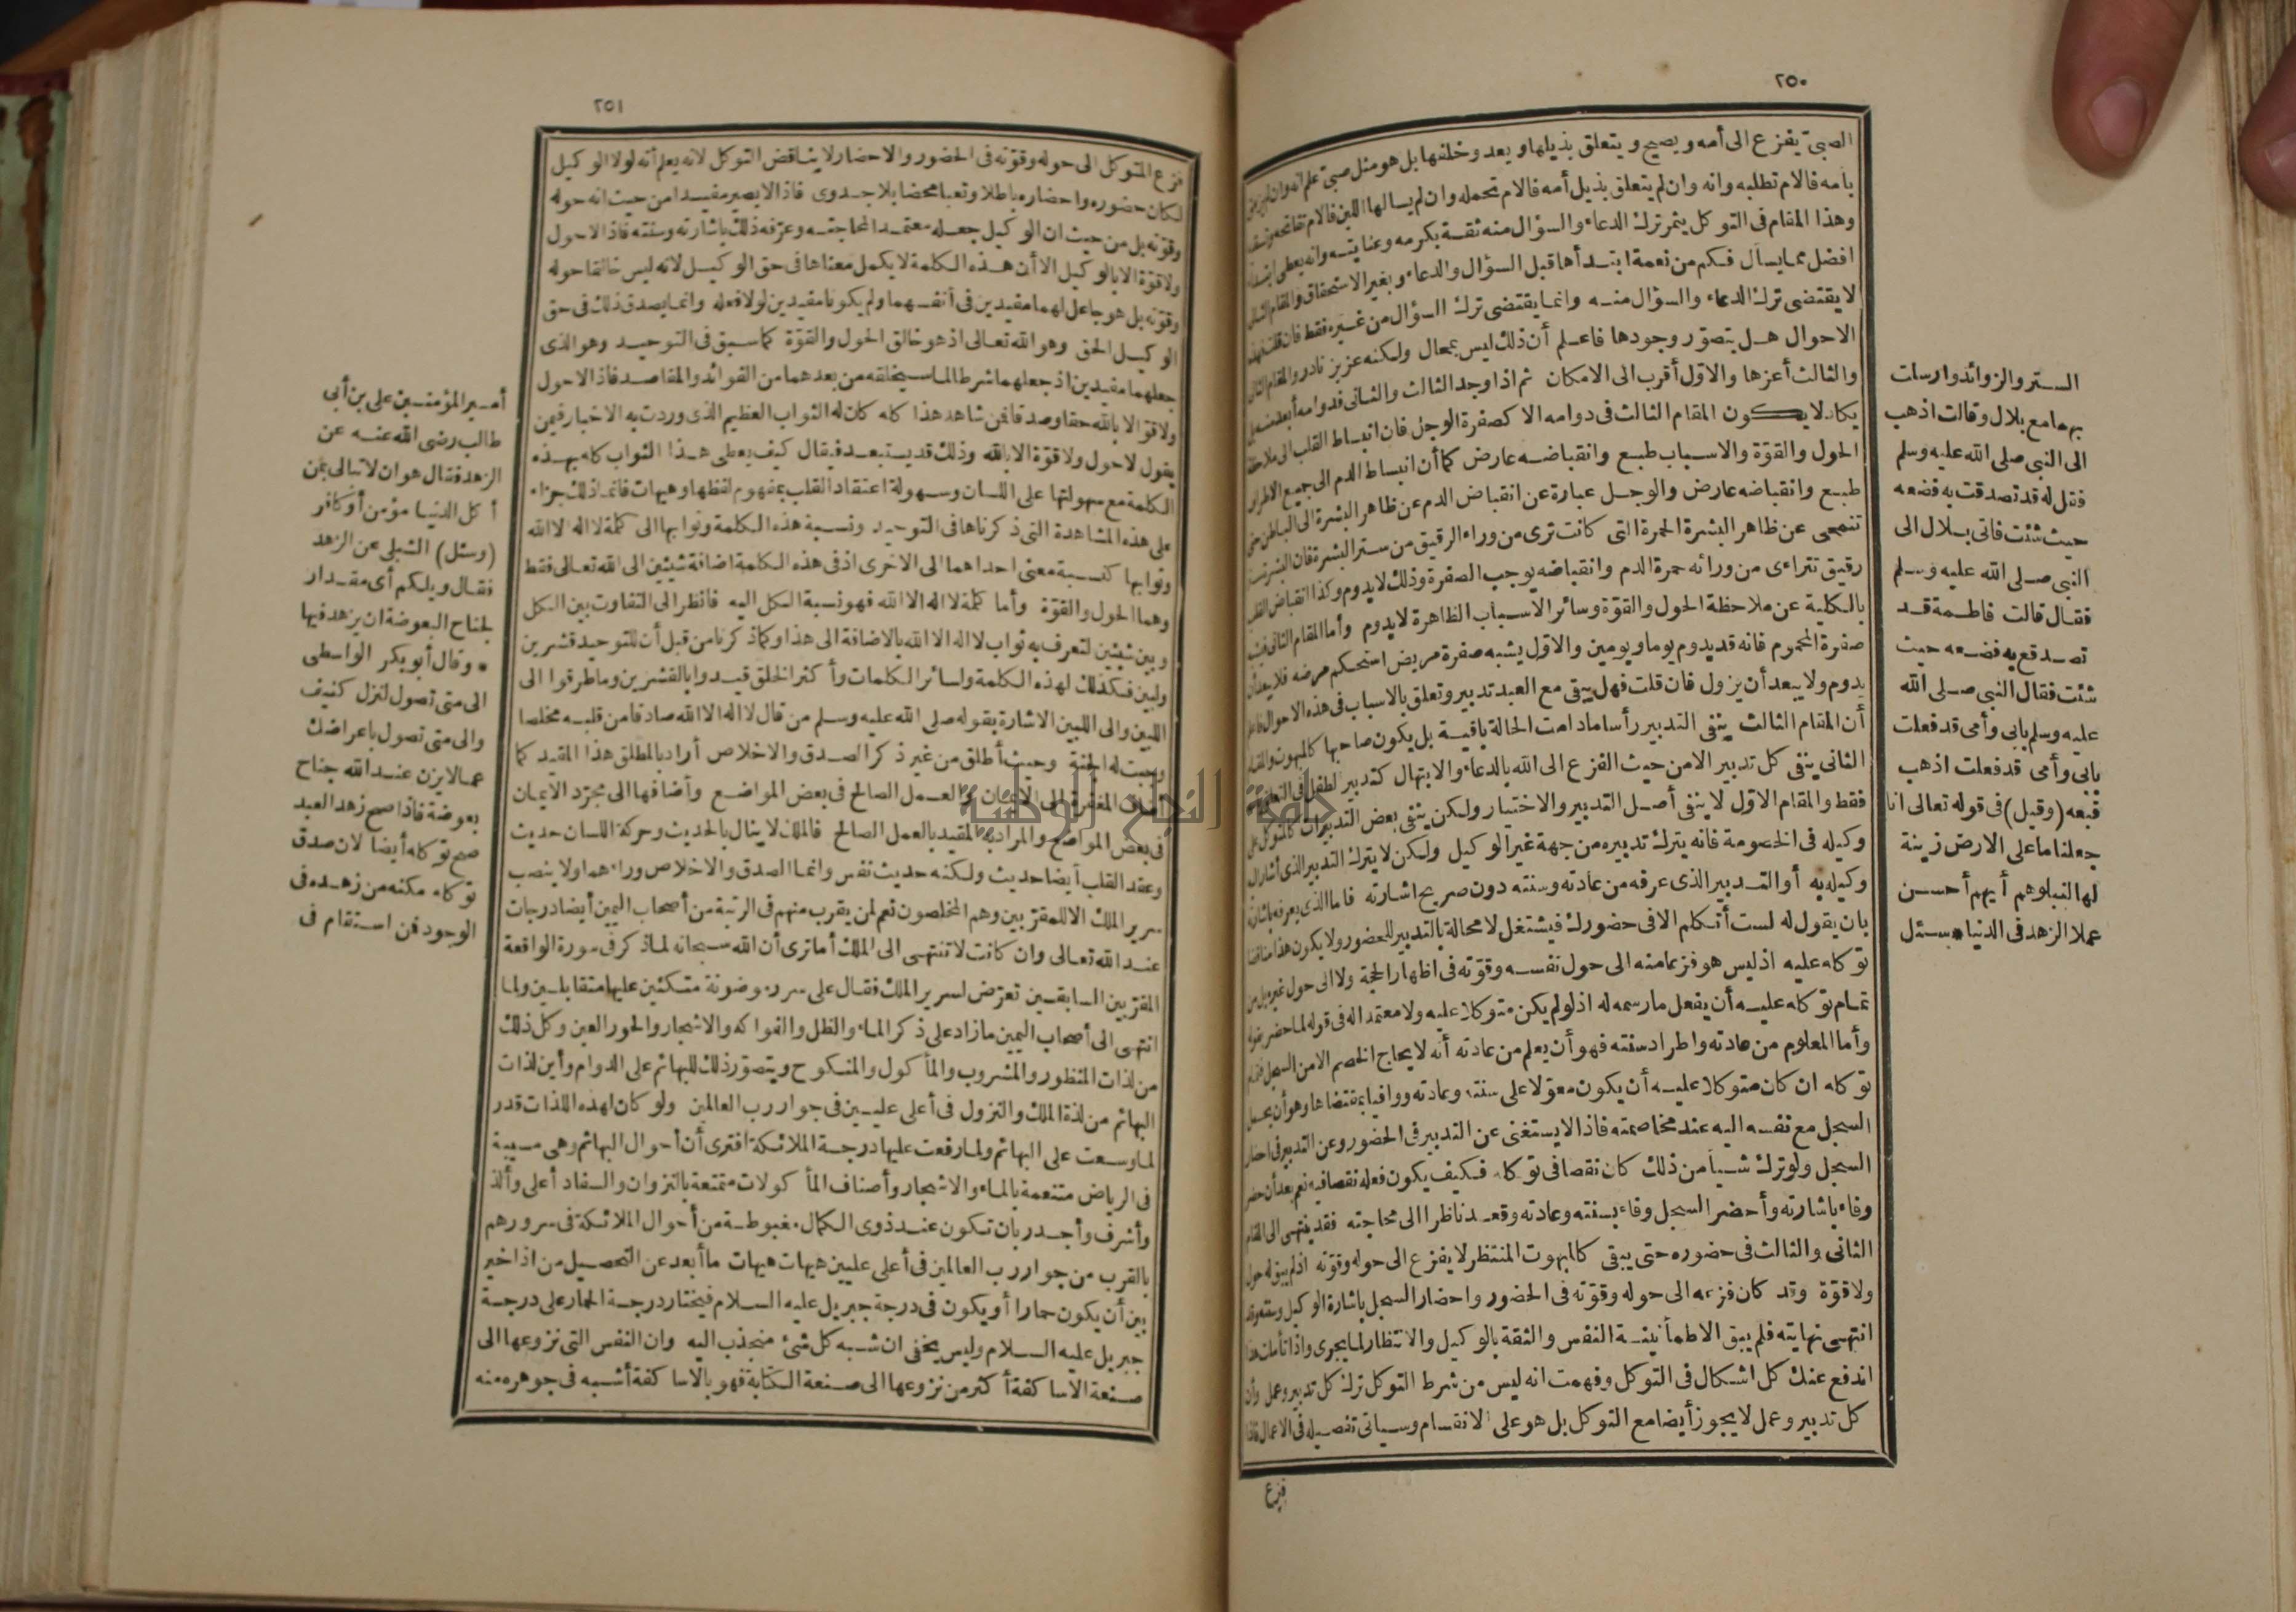 ٢٥٠
الصبىّ يفزع الى أمه ويصيح ويتعلق بذيلها ويعدو خلفها بل هو مثل صبىّ علم انه وان لم يزعق
بأمه فالام تطلبه وانه وان لم يتعلق بذيل أمه فالام تحمله وان لم يسالها اللبن فالام تفاتحه وتسقيه
وهذا المقام فى التوكل يثمر ترك الدعاء والسؤال منه ثقة بكرمه وعنايته وانه يعطى ابتداء
افضل مما يسأل فكم من نعمة ابتدأها قبل السؤال والدعاء وبغير الاستحقاق والمقام الثانى
لا يقتضى ترك الدعاء والسؤال منه وانما يقتضى ترك السؤال من غيره فقط فان قلت فهذه
الاحوال هل يتصوّر وجودها فاعلم أن ذلك ليس بمحال ولكنه عزيز نادر والمقام الثانى
والثالث أعزها والاوّل أقرب الى الامكان ثم اذا وجد الثالث والثانى فدوامه أبعد منه بل
يكاد لا يكون المقام الثالث فى دوامه الا كصفرة الوجل فان انبساط القلب الى ملاحظة
الحول والقوّة والاسباب طبع وانقباضه عارض كما أن انبساط الدم الى جميع الاطراف
طبع وانقباضه عارض والوجل عبارة عن انقباض الدم عن ظاهر البشرة الى الباطن حتى
تنمحى عن ظاهر البشرة الحمرة التى كانت ترى من وراء الرقيق من ستر البشرة فان البشرة ستر
رقيق تتراءى من ورائه حمرة الدم وانقباضه يوجب الصفرة وذلك لا يدوم وكذا انقباض القلب
بالكلية عن ملاحظة الحول والقوّة وسائر الاسباب الظاهرة لا يدوم وأما المقام الثانى فيشبه
صفرة المحموم فانه قد يدوم يوما ويومين والاوّل يشبه صفرة مريض استحكم مرضه فلا يبعد أن
يدوم ولا يبعد أن يزول فان قلت فهل يبقى مع العبد تدبير وتعلق بالاسباب فى هذه الاحوال فاعلم
أن المقام الثالث ينفى التدبير رأسا مادامت الحالة باقية بل يكون صاحبها كالمبهوت والمقام
الثانى ينفى كل تدبير الا من حيث الفزع الى الله بالدعاء والابتهال كتدبير الطفل فى التعلق بأمه
فقط والمقام الاوّل لا ينفى أصل التدبير والاختيار ولكن ينفى بعض التدبيرات كالمتوكل على
وكيله فى الخصومة فانه يترك تدبيره من جهة غير الوكيل ولكن لا يترك التدبير الذى أشار اليه
وكيله به أو التدبير الذى عرفه من عادته وسنته دون صريح اشارته فاما الذى يعرفه باشارته
بان يقول له لست أتكلم الا فى حضورك فيشتغل لا محالة بالتدبير للحضور ولا يكون هذا مناقضا
توكله عليه اذ ليس هو فزعا منه الى حول نفسه وقوّته فى اظهار الحجة ولا الى حول غيره بل من
تمام توكله عليه أن يفعل ما رسمه له اذ لو لم يكن متوكلا عليه ولا معتمدا له فى قوله لما حضر بقوله
وأما المعلوم من عادته واطراد سنته فهو أن يعلم من عادته أنه لا يحاج الخصم الا من السجل فتمام
توكله ان كان متوكلا عليه أن يكون معوّلا على سنته وعادته ووافيا بمقتضاها وهو أن يحمل
السجل مع نفسه اليه عند مخاصمته فاذا لا يستغنى عن التدبير فى الحضور وعن التدبير فى احضار
السجل ولو ترك شيأ من ذلك كان نقصا فى توكله فكيف يكون فعله نقصا فيه نعم بعد أن حضر
وفاء باشارته وأحضر السجل وفاء بسنته وعادته وقعد ناظرا الى محاجته فقد ينتهى الى المقام
الثانى والثالث فى حضوره حتى يبقى كالمبهوت المنتظر لا يفزع الى حوله وقوّته اذ لم يبق له حول
ولا قوّة وقد كان فزعه الى حوله وقوّته فى الحضور واحضار السجل باشارة الوكيل وسنته وقد
انتهى نهايته فلم يبق الا طمأنينة النفس والثقة بالوكيل والانتظار لما يجرى واذا تأملت هذا
اندفع عنك كل اشكال فى التوكل وفهمت انه ليس من شرط التوكل ترك كل تدبير وعمل وأن
كل تدبير وعمل لا يجوز أيضا مع التوكل بل هو على الانقسام وسيأتى تفصيله فى الاعمال فاذا
فزع
الستر والزوائد وأرسلت
بهما مع بلال وقالت اذهب
الى النبى صلى الله عليه وسلم
فقل له قد تصدقت به فضعه
حيث شئت فاتى بلال الى
النبى صلى الله عليه وسلم
فقال قالت فاطمة قد
تصدقع به فضعه حيث
شئت فقال النبى صلى الله
عليه وسلم بابى وأمى قد فعلت
بابى وأمى قد فعلت اذهب
فبعه (وقيل) فى قوله تعالى انا
جعلنا ما على الارض زينة
لها لنبلوهم أيهم أحسن
عملا الزهد فى الدنيا • سئل
٢٥١
فزع المتوكل الى حوله وقوّته فى الحضور والاحضار لا يناقض التوكل لانه يعلم أنه لولا الوكيل
لكان حضوره واحضاره باطلا وتعبا محضا بلا جدوى فاذا لا يصير مفيدا من حيث انه حوله
وقوّته بل من حيث ان الوكيل جعله معتمدا لمحاجته وعرّفه ذلك باشارته وسنته فاذا لا حول
ولا قوّة الا بالوكيل الا أن هذه الكلمة لا يكمل معناها فى حق الوكيل لانه ليس خالقا حوله
وقوّته بل هو جاعل لهما مفيدين فى أنفسهما ولم يكونا مفيدين لولا فعله وانما يصدق ذلك فى حق
الوكيل الحق وهو الله تعالى اذ هو خالق الحول والقوّة كما سبق فى التوحيد وهو الذى
جعلهما مفيدين اذ جعلهما شرطا لما سيخلقه من بعدهما من الفوائد والمقاصد فاذا لا حول
ولا قوّة الا بالله حقا وصدقا فمن شاهد هذا كله كان له الثواب العظيم الذى وردت به الاخبار فيمن
يقول لا حول ولا قوّة الا بالله وذلك قد يستبعد فيقال كيف يعطى هذا الثواب كله بهذه
الكلمة مع سهولتها على اللسان وسهولة اعتقاد القلب بمفهوم لفظها وهيهات فانما ذلك جزاء
على هذه المشاهدة التى ذكرناها فى التوحيد ونسبة هذه الكلمة وثوابها الى كلمة لا اله الا الله
وثوابها كنسبة معنى احداهما الى الاخرى اذ فى هذه الكلمة اضافة شيئين الى الله تعالى فقط
وهما الحول والقوّة وأما كلمة لا اله الا الله فهو نسبة الكل اليه فانظر الى التفاوت بين الكل
وبين شيئين لتعرف به ثواب لا اله الا الله بالاضافة الى هذا وكما ذكرنا من قبل أن للتوحيد قشرين
ولبين فكذلك لهذه الكلمة ولسائر الكلمات وأكثر الخلق قيدوا بالقشرين وما طرقوا الى
اللبين والى اللبين الاشارة بقوله صلى الله عليه وسلم من قال لا اله الا الله صادقا من قلبه مخلصا
وجبت له الجنة وحيث أطلق من غير ذكر الصدق والاخلاص أراد بالمطلق هذا المقيد كما
أضاف المغفرة الى الايمان والعمل الصالح فى بعض المواضع وأضافها الى مجرّد الايمان
فى بعض المواضع والمراد به المقيد بالعمل الصالح فالملك لا ينال بالحديث وحركة اللسان حديث
وعقد القلب أيضا حديث ولكنه حديث نفس وانما الصدق والاخلاص وراءهما ولا ينصب
سرير الملك الا للمقرّبين وهم المخلصون نعم لمن يقرب منهم فى الرتبة من أصحاب اليمين أيضا درجات
عند الله تعالى وان كانت لا تنتهى الى الملك أما ترى أن الله سبحانه لما ذكر فى سورة الواقعة
المقرّبين السابقين تعرّض لسرير الملك فقال على سرر موضونة متكئين عليها متقابلين ولما
انتهى الى أصحاب اليمين ما زاد على ذكر الماء والظل والفواكه والاشجار والحور العين وكل ذلك
من لذات المنظور والمشروب والمأكول والمنكوح ويتصوّر ذلك للبهائم على الدوام وأين لذات
البهائم من لذة الملك والنزول فى أعلى عليين فى جوار رب العالمين ولو كان لهذه اللذات قدر
لما وسعت على البهائم ولما رفعت عليها درجة الملائكة افترى أن أحوال البهائم وهى مسيبة
فى الرياض متنعمة بالماء والاشجار وأصناف المأكولات متمتعة بالنزوان والسفاد أعلى وألذ
وأشرف وأجدر بان تكون عند ذوى الكمال مغبوطة من أحوال الملائكة فى سرورهم
بالقرب من جوار رب العالمين فى أعلى عليين هيهات هيهات ما أبعد عن التحصيل من اذا خير
بين أن يكون حمارا أو يكون فى درجة جبريل عليه السلام فيختار درجة الحمار على درجة
جبريل عليه السلام وليس يخفى ان شبه كل شئ منجذب اليه وان النفس التى نزوعها الى
صنعة الاساكفة أكثر من نزوعها الى صنعة الكتابة فهو بالاساكفة أشبه فى جوهره منه
أمير المؤمنين على بن أبى
طالب رضى الله عنه عن
الزهد فقال هو ان لا تبالى بمن
أكل الدنيا مؤمن أو كافر
(وسئل) الشبلى عن الزهد
فقال ويلكم أى مقدار
لجناح البعوضة ان يزهد فيها
• وقال أبو بكر الواسطى
الى متى تصول لنزل كنيف
والى متى تصول باعراضك
عما لا يزن عند الله جناح
بعوضة فاذا صح زهد العبد
صح توكله أيضا لان صدق
توكله مكنه من زهده فى
الوجود فمن استقام فى
جامعة النجاح الوطنية